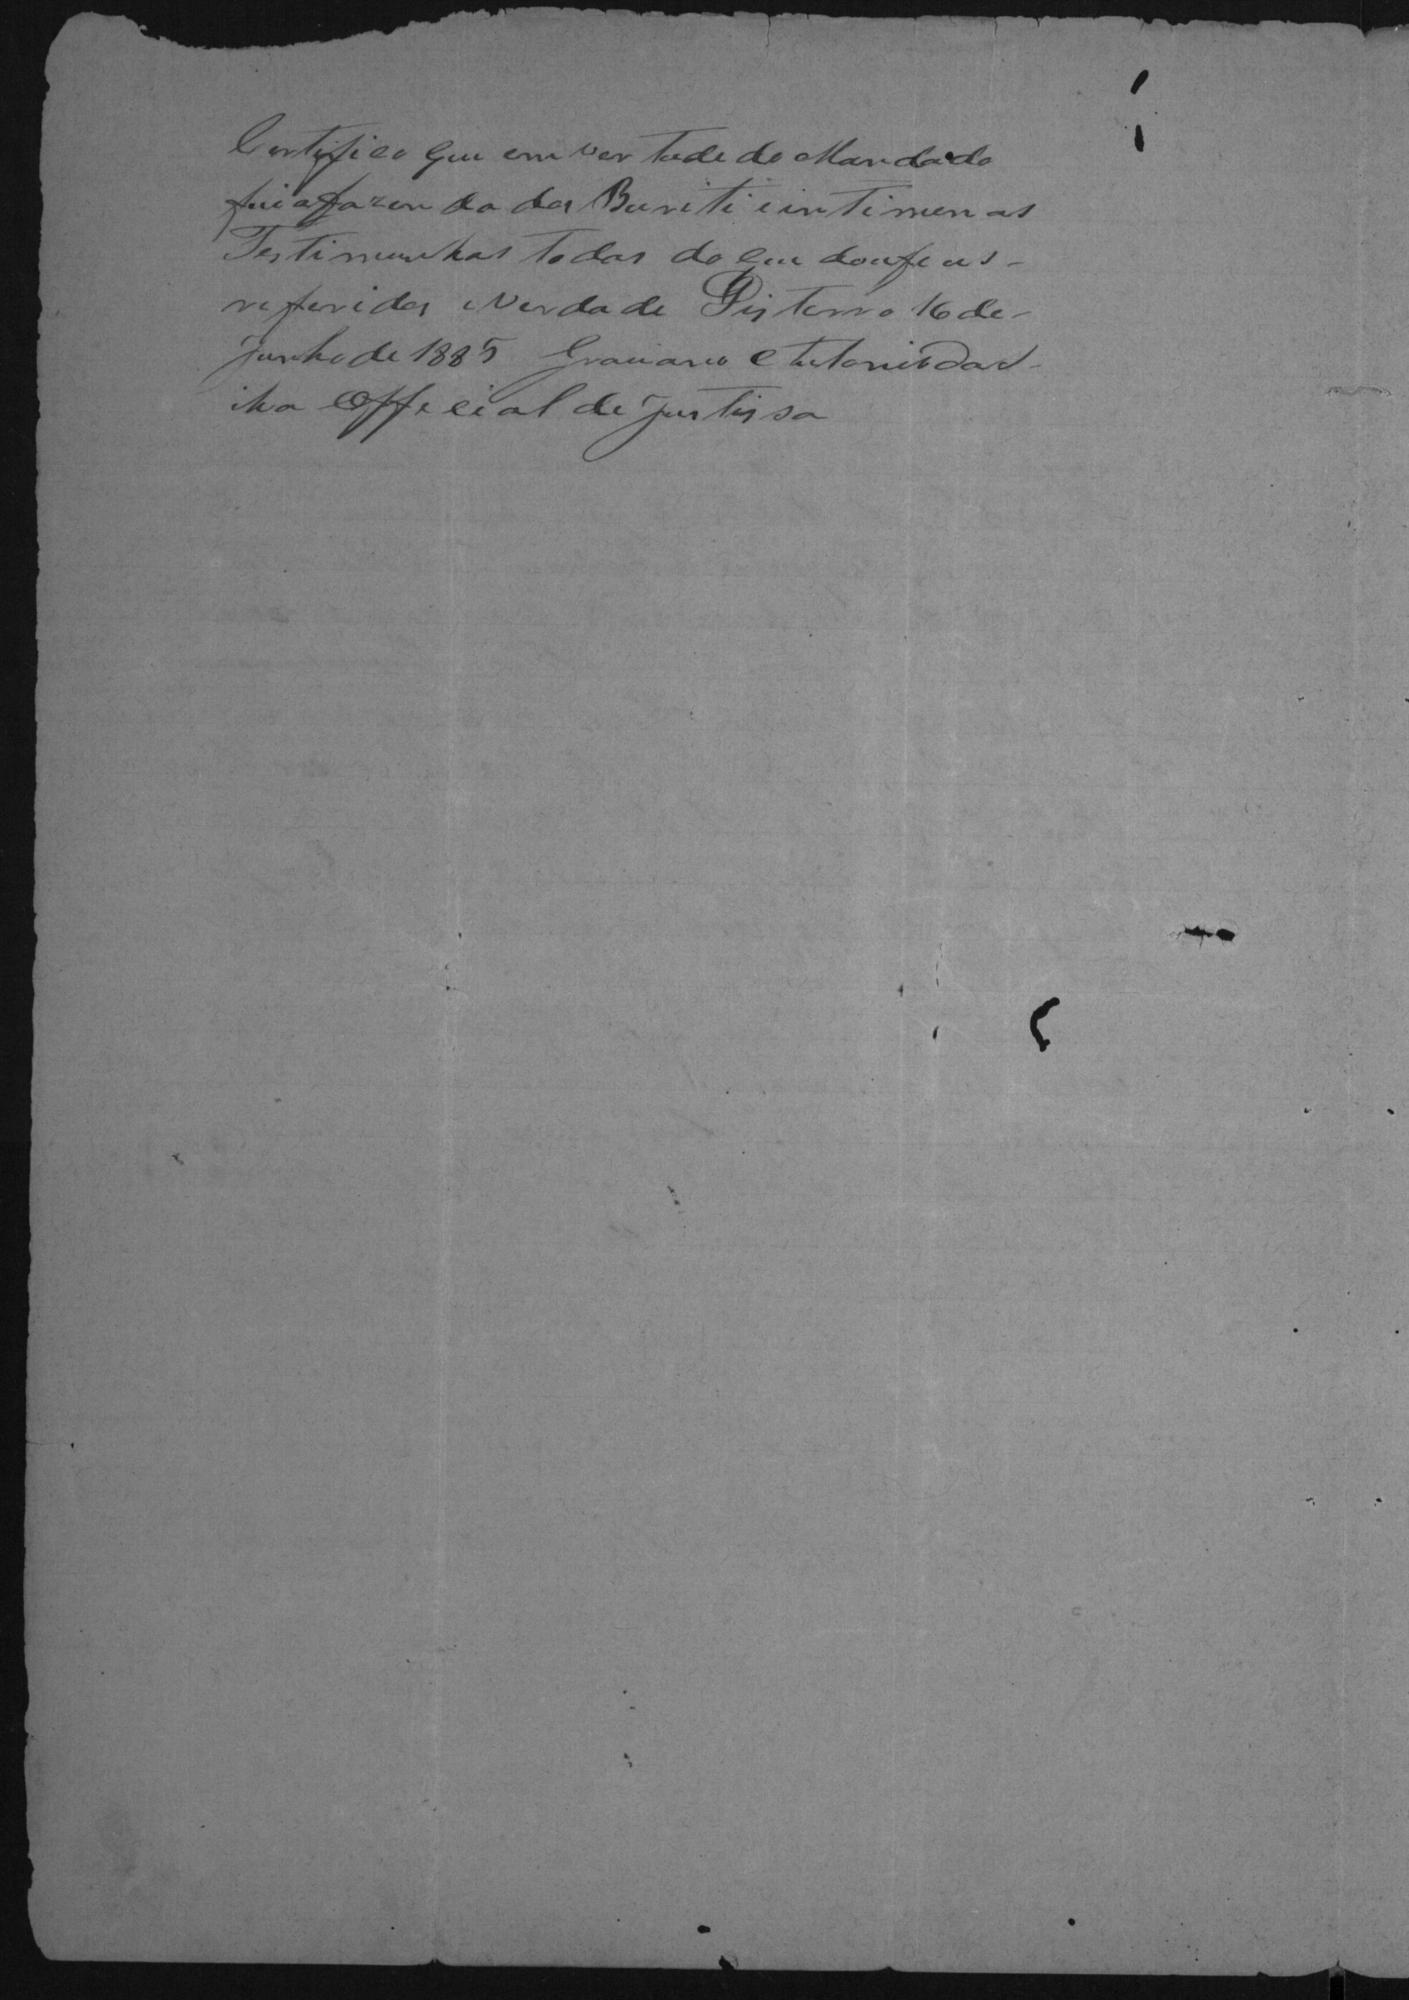 Certifico que em vertude do Mandado
fui a fazenda da Buriti e intimen as
Testimunhas todas do que dou fe as
referida e Verdade Desterro 16 de
Junho de 1885 Graciano Antonio da S
ilva Official de Justissa